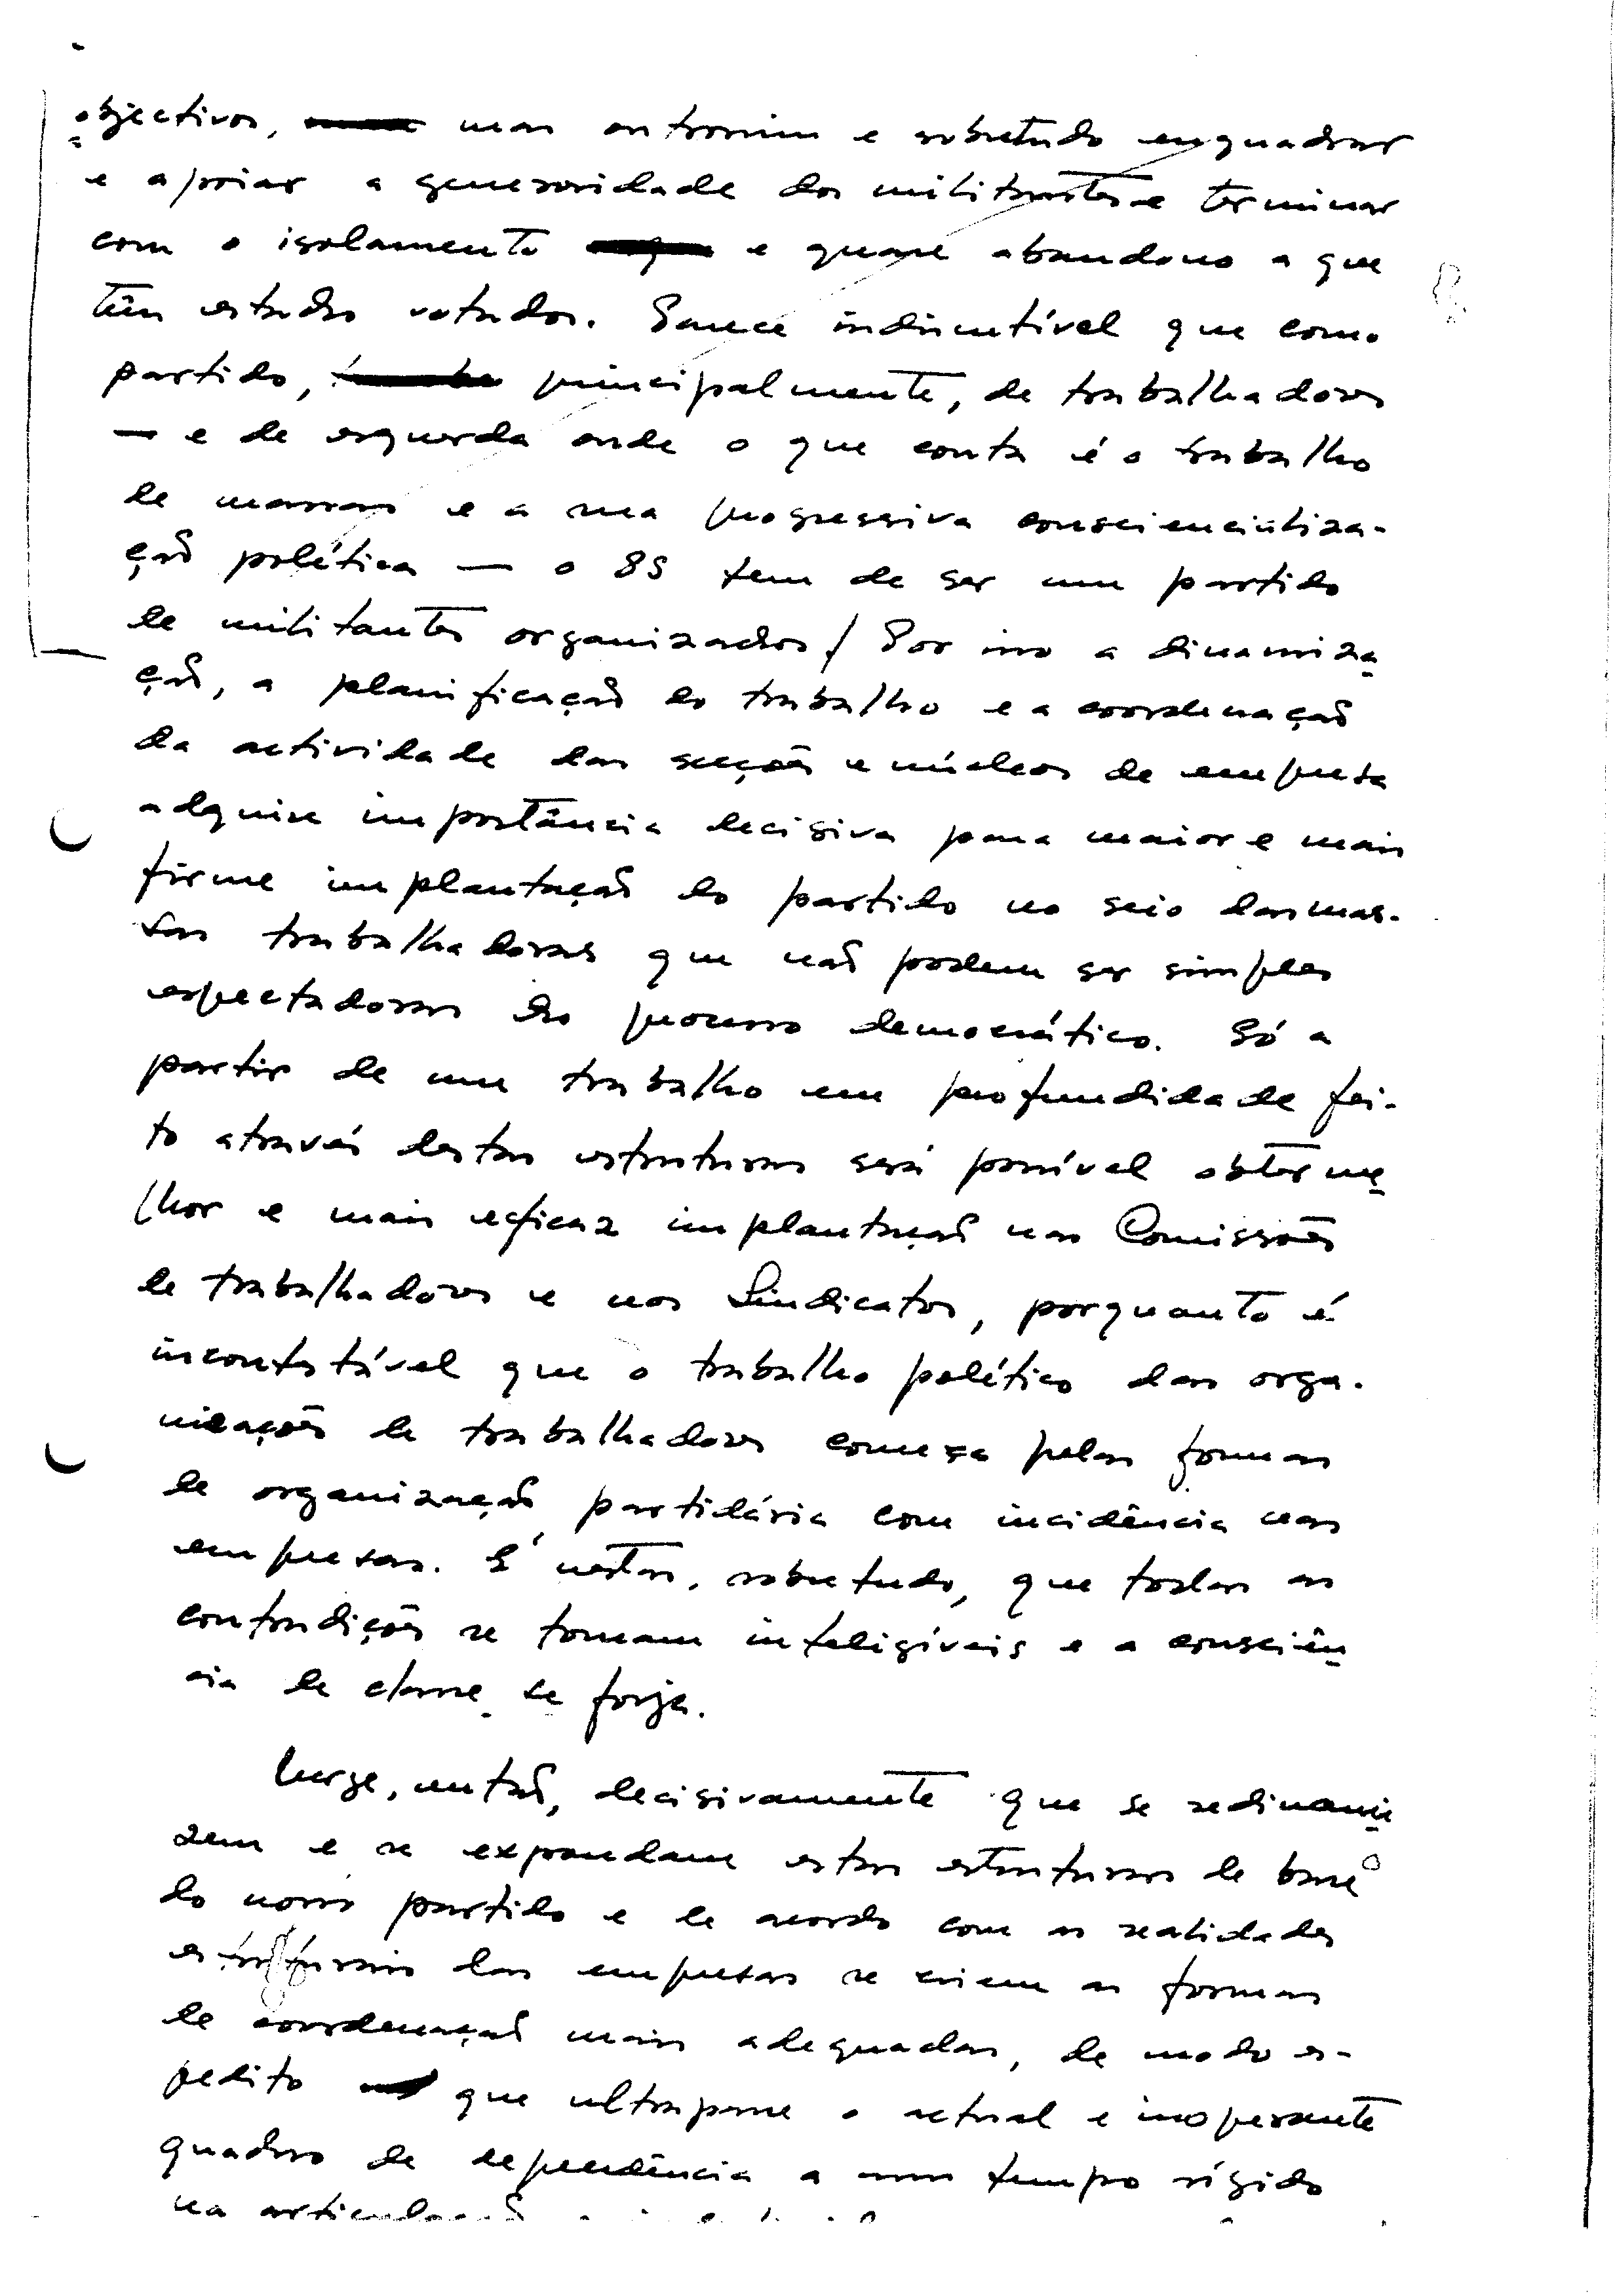 objectivos, mas outrossim e sobretudo enquadrar
e apoiar a generosidade dos militantes e terminar
com o isolamento e quase abandono a que
têm estado votados. Parece indiscutível que como
partido, principalmente, de trabalhadores
— e de esquerda onde o que conta é o trabalho
de massas e a sua progressiva consciencializa-
ção política — o PS tem de ser um partido
de militantes organizados / Por isso a dinamiza-
ção, a planificação do trabalho e a coordenação
da actividade das secções e núcleos de empresa
adquire importância decisiva para maior e mais
firme implantação do partido no seio das mas-
sas trabalhadoras que não podem ser simples
espectadoras do processo democrático. Só a
partir de um trabalho em profundidade fei-
to através destas estruturas será possível obter me-
lhor e mais eficaz implantação nas Comissões
de trabalhadores e nos Sindicatos, porquanto é
incontestável que o trabalho político das orga-
nizações de trabalhadores começa pelas formas
de organização partidária com incidência nas
empresas. É nestas, sobretudo, que todas as
contradições se tornam inteligíveis e a consciên-
cia de classe se forja.
Urge, então, decisivamente que se redinami-
zem e se expandam estas estruturas de base
do nosso partido e de acordo com as realidades
estruturais das empresas se criem as formas
de coordenação mais adequadas, de modo es-
pedito que ultrapasse o actual e inoperante
quadro de dependência a um tempo rígido
na articulação